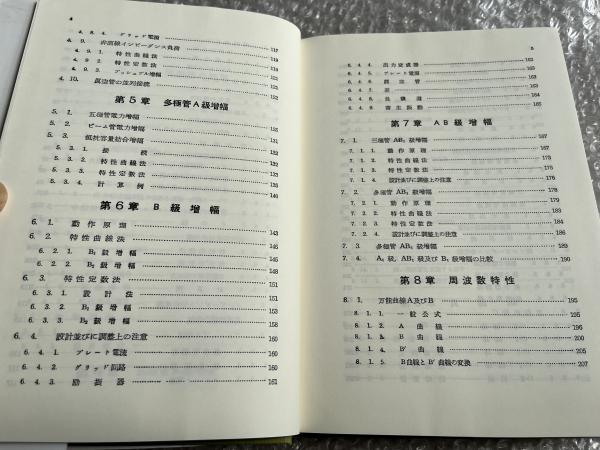 4
4. 8. 4. グリッド電流 117
4. 9. 非直線インピーダンス負荷
4. 9. 1. 特性曲線法
4. 9. 2. 特性定数法 122
4. 9. 3. プッシュプル増幅
4. 10. 真空管の並列接続 132
第5章 多極管A級増幅
5. 1. 五極管電力増幅
5. 2. ビーム管電力増幅
5. 3. 抵抗容量結合増幅
5. 3. 1. 接続
5. 3. 2. 特性曲線法
5. 3. 3. 特性定数法
5. 3. 4. 計算例 140
第6章 B級増幅
6. 1. 動作原理 143
6. 2. 特性曲線法 145
6. 2. 1. B₁級増幅 145
6. 2. 2. B₂級増幅
6. 3. 特性定数法
6. 3. 1. 設計法 151
6. 3. 2. B₁級増幅
6. 3. 3. B₂級増幅 158
6. 4. 設計並びに調整上の注意 160
6. 4. 1. プレート電流 160
6. 4. 2. グリッド回路 160
6. 4. 3. 励振器 161
5
6. 4. 4. 出力変成器
6. 4. 5. プレート電源
6. 4. 6. 真空管
6. 4. 7.
6. 4. 8.
6. 4. 9. 寄生振動
第7章 AB級増幅
7. 1. 三極管AB₁級増幅 167
7. 1. 1. 動作原理 167
7. 1. 2. 特性曲線法
7. 1. 3. 特性定数法
7. 1. 4. 設計並びに調整上の注意 176
7. 2. 多極管AB₁級増幅 178
7. 2. 1. 動作原理 178
7. 2. 2. 特性曲線法
7. 2. 3. 特性定数法 183
7. 2. 4. 設計並びに調整上の注意 186
7. 3. 多極管AB₂級増幅 187
7. 4. A₁級, AB₁級及びB₁級増幅の比較 190
第8章 周波数特性
8. 1. 万能曲線A及びB 195
8. 1. 1. 一般公式 195
8. 1. 2. A曲線 196
8. 1. 3. B曲線 200
8. 1. 4. B′曲線 205
8. 1. 5. B曲線とB′曲線の変換 207